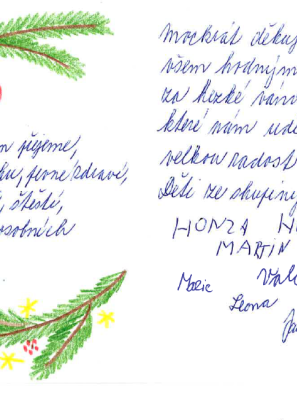 přejeme,
pevné zdraví,
štěstí,
osobních
mockrát děkuj
všem hodným
za hezké váno
které nám udě
velkou radost
Děti ze skupiny
HONZA H
MARTIN
Marie
Leona